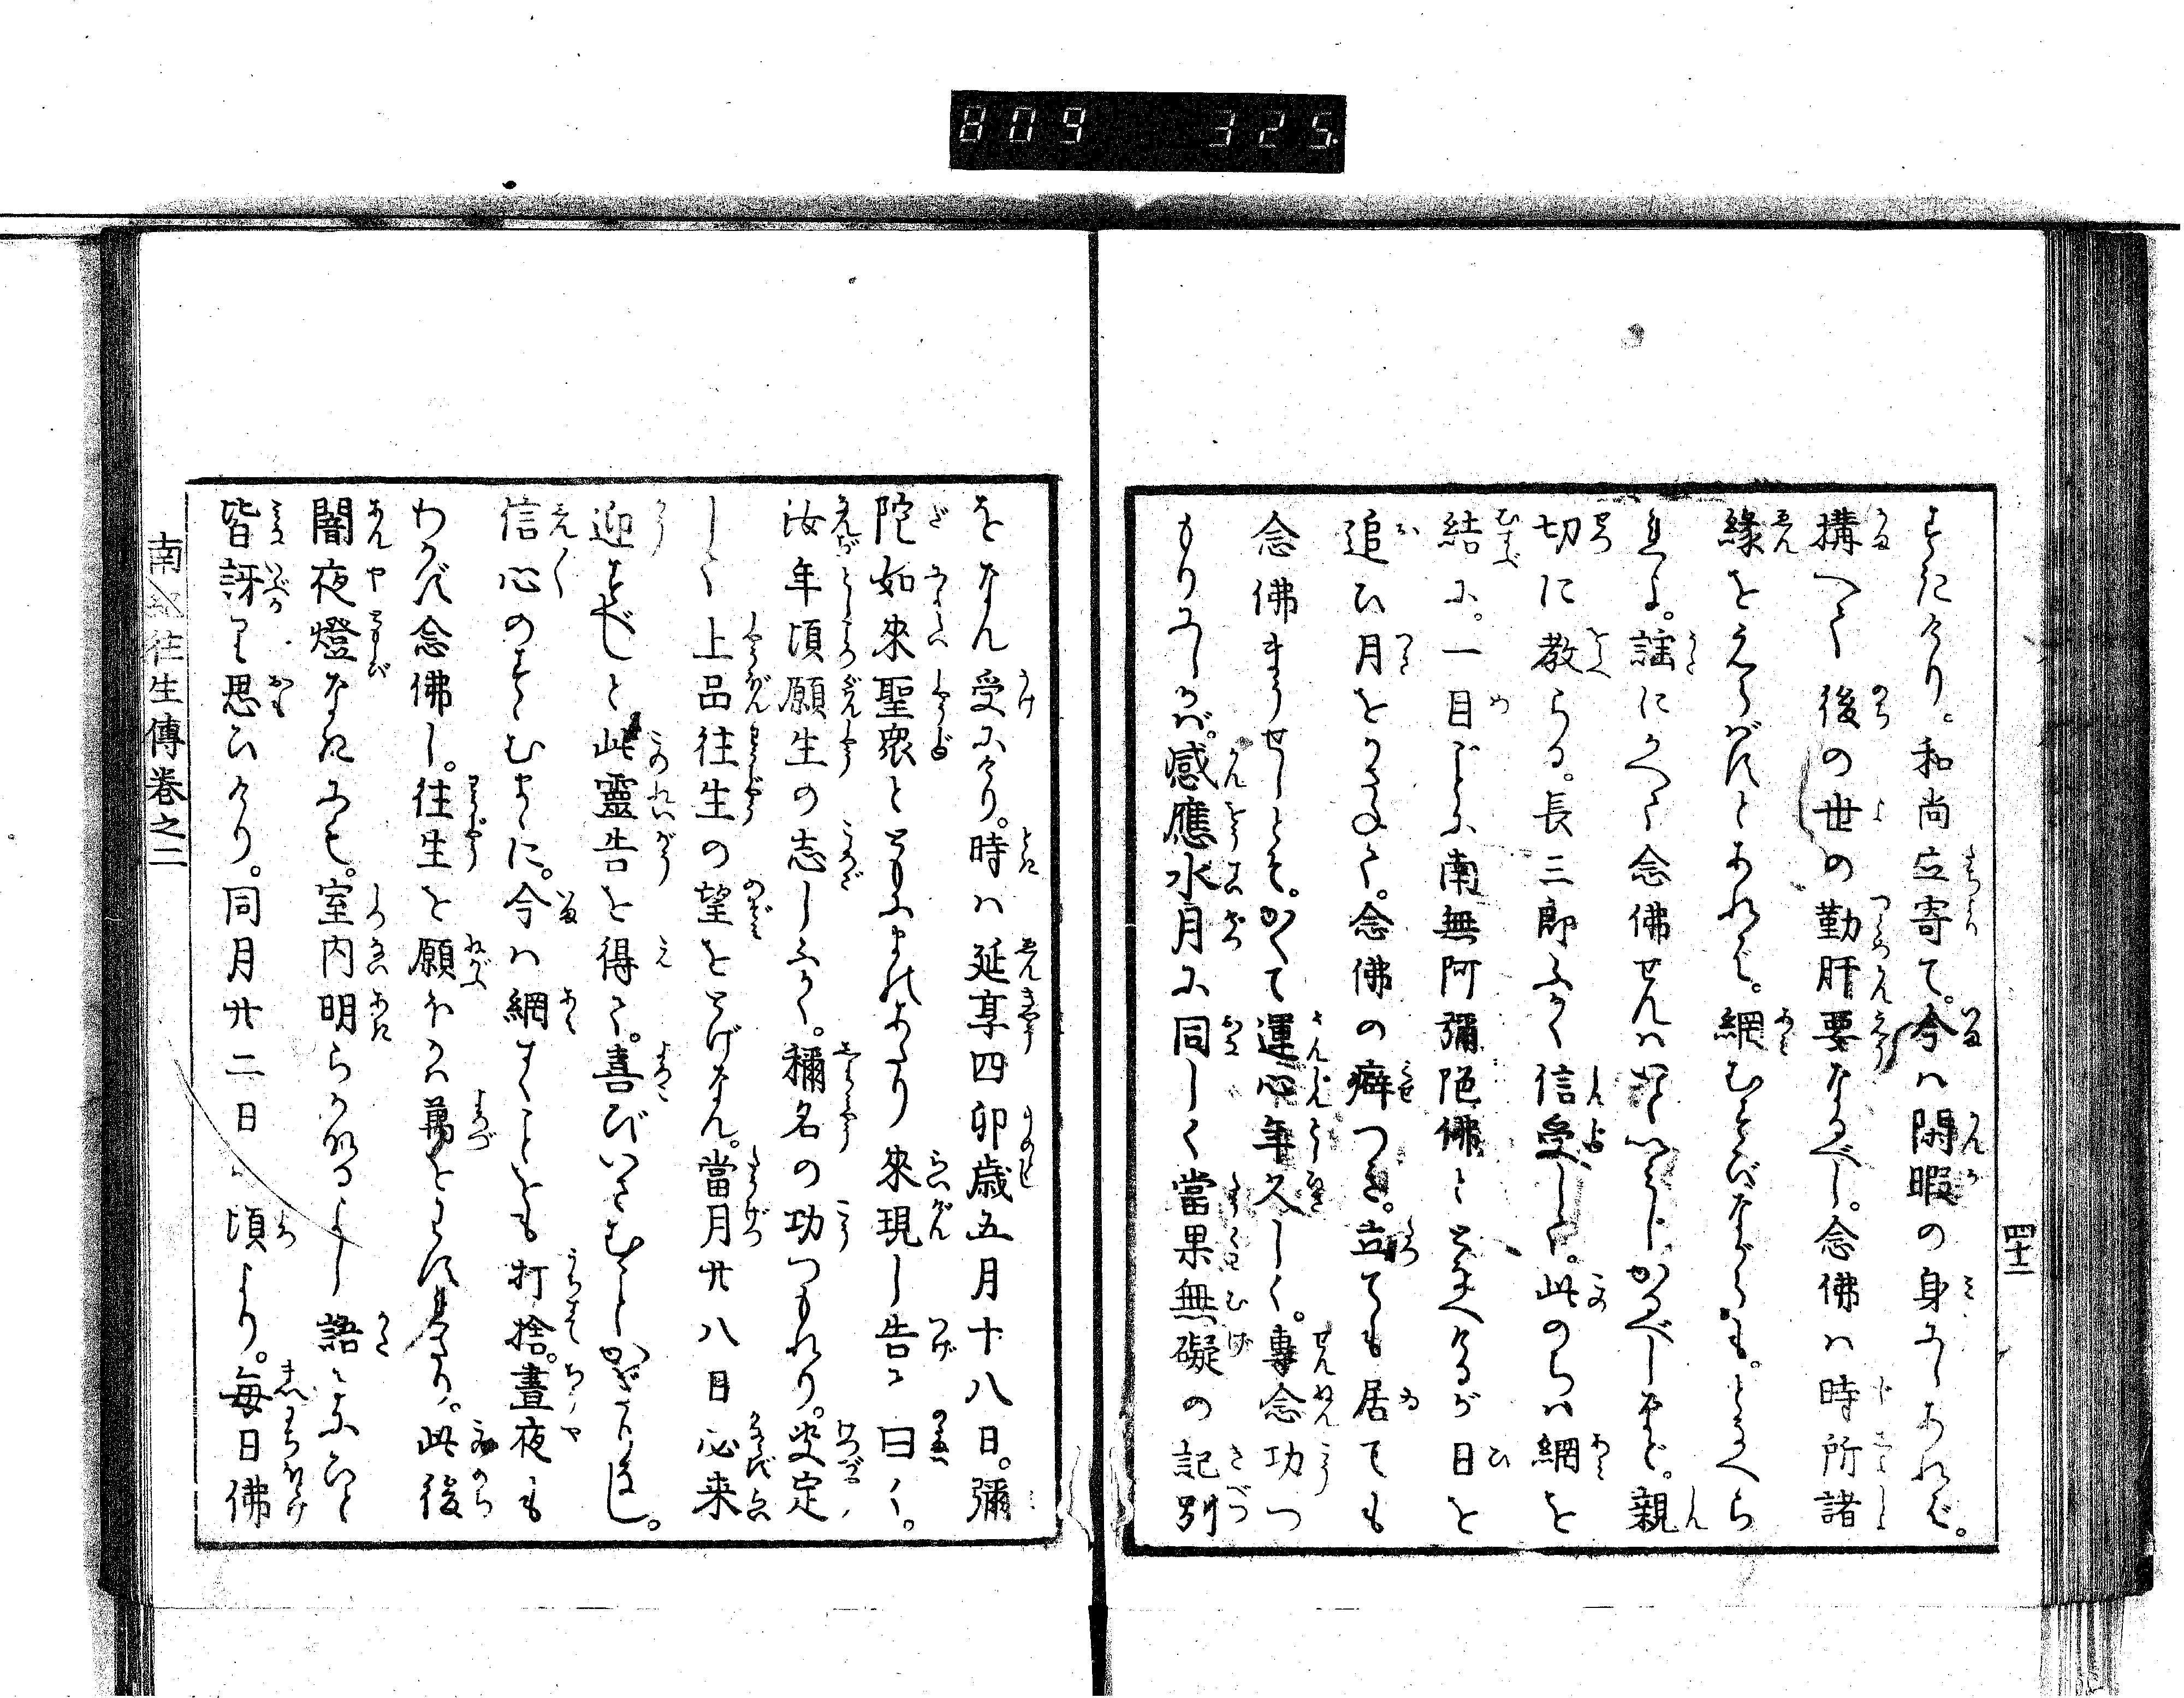 809 325
四十二
すきたけり。和尚立寄て。今ハ閑暇の身にしあれバ。
搆へて後の世の勤肝要なるべし。念佛ハ時所諸
縁をえらばずとあれバ。網むすびながらも。となへら
れよ。謡にかへて念佛せんハ
切に教らる。長三郎ふかく信受して。此のちハ網を
結に。一目ごとに南無阿彌陀佛ととなへけるが日を
追ひ月をかさねて。念佛の癖つき。立ても居ても
念佛まうせしとぞ。かくて運心年久しく。專念功つ
もりにしかバ。感應水月に同しく當果無礙の記別
をなん受にけり。時ハ延享四卯歳五月十八日。彌
陀如來聖衆とともにまのあたり來現し告て曰く。
汝年頃願生の志しふかく。稱名の功つもれり。决定
して上品往生の望をとげなん。當月廿八日必来
迎すべしと此靈告を得て。喜びいさむことかぎりなし。
信心のすゝむまゝに。今ハ網すくことをも打捨。晝夜も
わかず念佛し。往生を願ふの外萬をわすれたり。此後
闇夜燈なきにも。室内明らかなるよし語に
皆訝り思ひけり。同月廿二日の頃より。毎日佛
往生傳卷之二